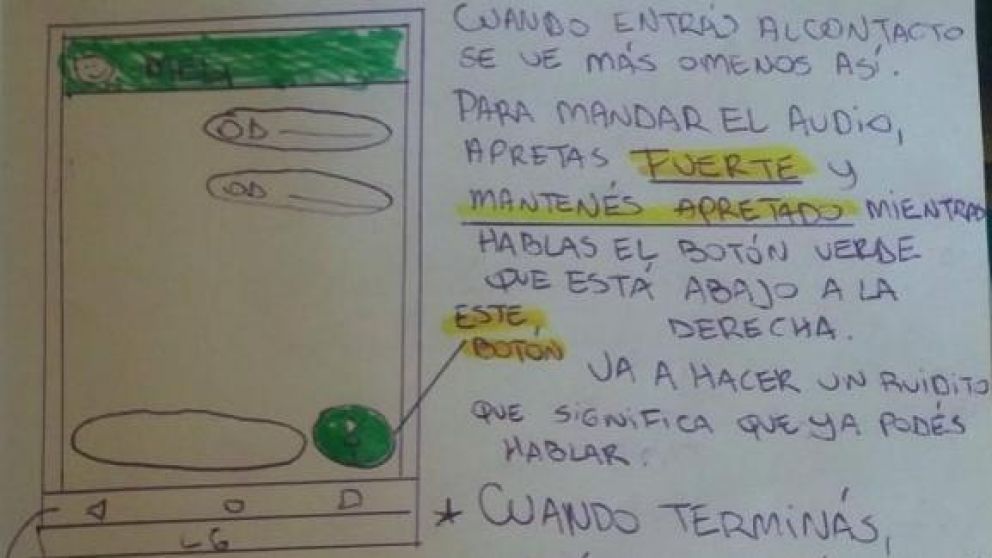 MELI
CUANDO ENTRÁS AL CONTACTO
SE VE MÁS O MENOS ASÍ.
PARA MANDAR EL AUDIO,
APRETAS FUERTE Y
MANTENÉS APRETADO MIENTRAS
HABLAS EL BOTÓN VERDE
QUE ESTÁ ABAJO A LA
DERECHA.
ESTE
BOTÓN
VA A HACER UN RUIDITO
QUE SIGNIFICA QUE YA PODÉS
HABLAR.
* CUANDO TERMINÁS,
LG